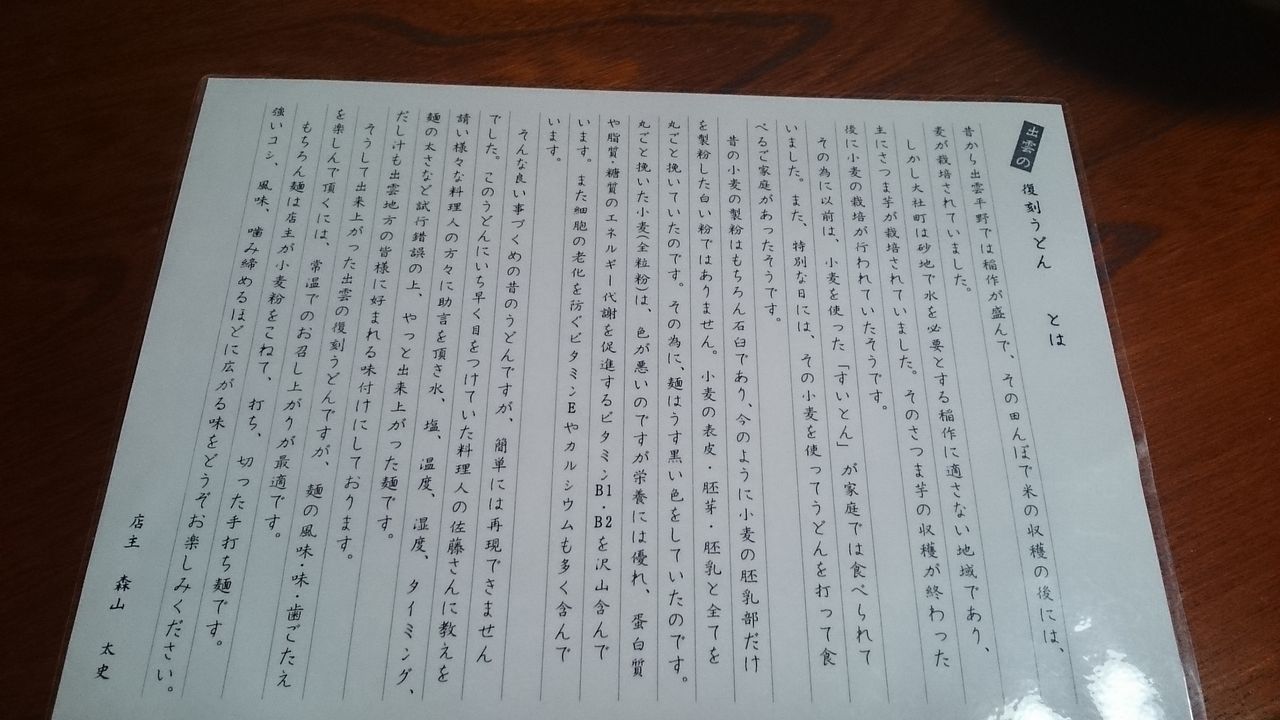 出雲の 復刻うどん とは
昔から出雲平野では稲作が盛んで、その田んぼで米の収穫の後には、
麦が栽培されていました。
しかし大社町は砂地で水を必要とする稲作に適さない地域であり、
主にさつま芋が栽培されていました。そのさつま芋の収穫が終わった
後に小麦の栽培が行われていたそうです。
その為に以前は、小麦を使った「すいとん」が家庭では食べられて
いました。また、特別な日には、その小麦を使ってうどんを打って食
べるご家庭があったそうです。
昔の小麦の製粉はもちろん石臼であり、今のように小麦の胚乳部だけ
を製粉した白い粉ではありません。小麦の表皮・胚芽・胚乳と全てを
丸ごと挽いていたのです。その為に、麺はうす黒い色をしていたのです。
丸ごと挽いた小麦(全粒粉)は、色が悪いのですが栄養には優れ、蛋白質
や脂質・糖質のエネルギー代謝を促進するビタミンB1・B2を沢山含んで
います。また細胞の老化を防ぐビタミンEやカルシウムも多く含んで
います。
そんな良い事づくめの昔のうどんですが、簡単には再現できません
でした。このうどんにいち早く目をつけていた料理人の佐藤さんに教えを
請い様々な料理人の方々に助言を頂き水、塩、温度、湿度、タイミング、
麺の太さなど試行錯誤の上、やっと出来上がった麺です。
だし汁も出雲地方の皆様に好まれる味付けにしております。
そうして出来上がった出雲の復刻うどんですが、麺の風味・味・歯ごたえ
を楽しんで頂くには、常温でのお召し上がりが最適です。
もちろん麺は店主が小麦粉をこねて、打ち、切った手打ち麺です。
強いコシ、風味、噛み締めるほどに広がる味をどうぞお楽しみください。
店主 森山 太史